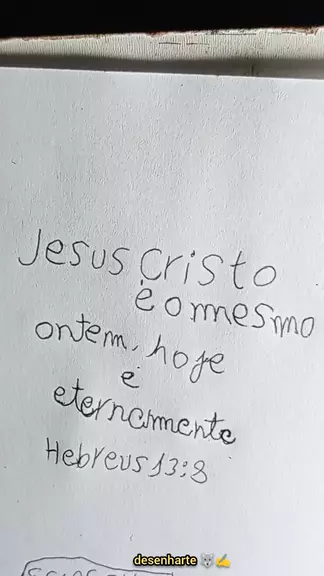 Jesus Cristo
é o mesmo
ontem, hoje
e
eternamente
Hebreus 13:8
desenharte 🐺✍️